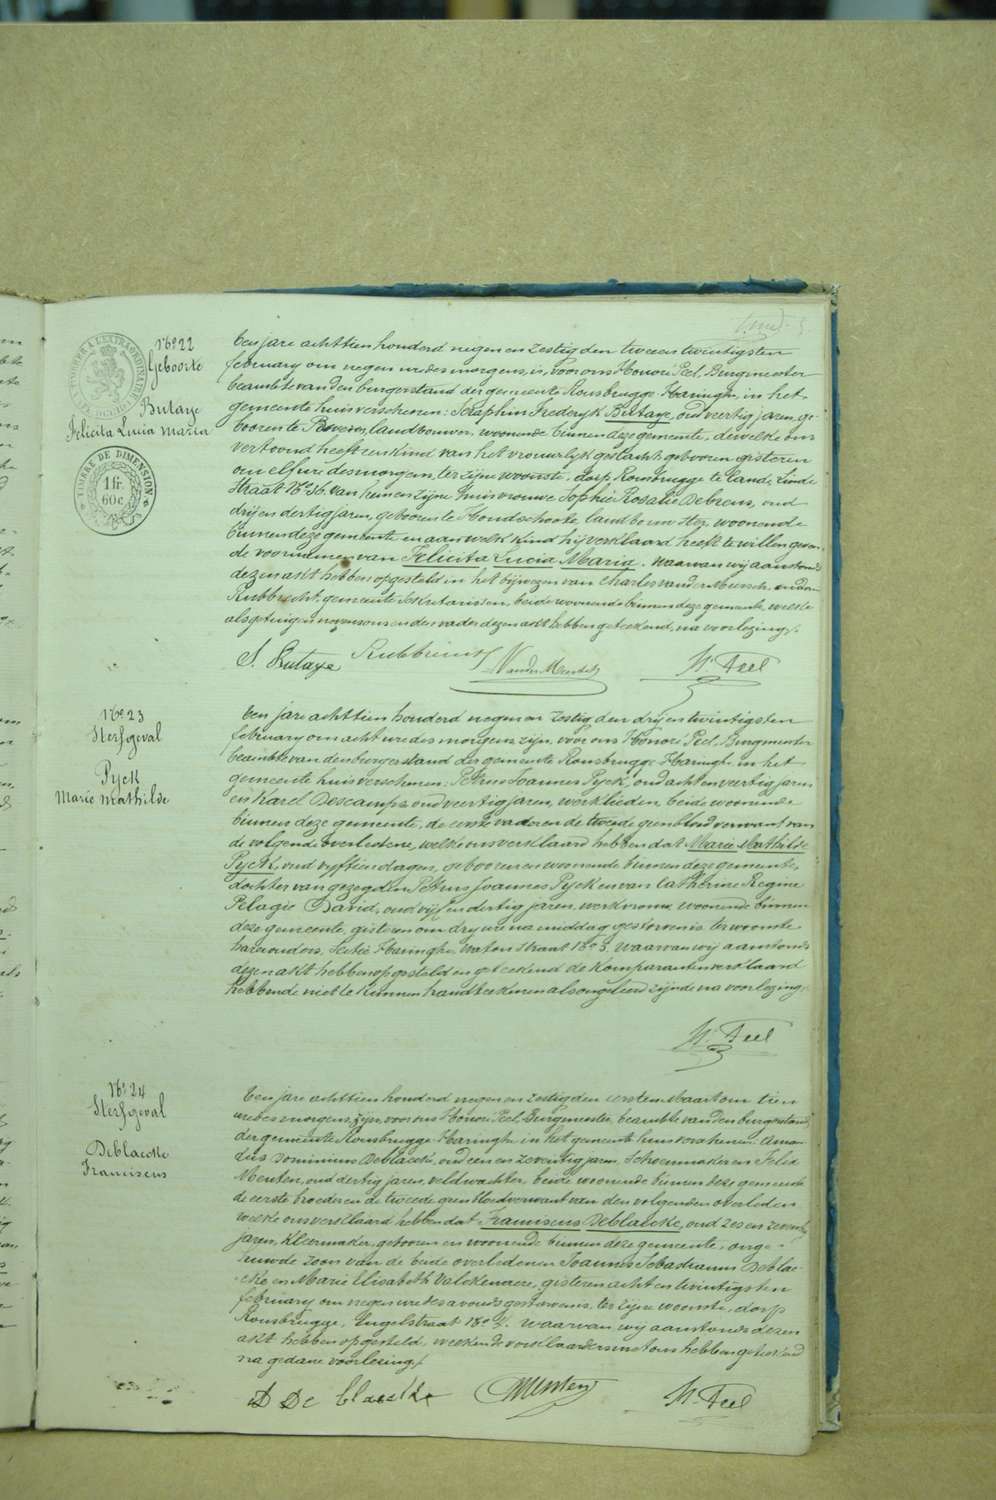 TIMBRE DE DIMENSION
1 fr.
60 c.
Nº 22
Geboorte
Butaye
Felicita Lucia Maria
Een jare achttien honderd negen en zestig den twee en twintigsten
february om negen uredes morgens, is, voor ons Honoré Peel, Burgmeester
beambte van den burgerstand der gemeente Rousbrugge-Haringhe, in het
gemeente huis verschenen: Seraphin Frederyk Buttaye, oud veertig jaren, ge-
booren te landbouwer, woonende binnen deze gemeente, dewelke ons
vertoond heeft een kind van het vrouwelyk geslacht, gebooren gisteren
om elf ure des morgens, ter zijne woonste, dorp Rousbrugge te lande, Linde
Straat Nº 36, van hem en zijne huisvrouwe Sophie Rosalie Debreus, oud
drij en dertig jaren, geboren te Hondschoote, landbouwstez, woonende
binnen deze gemeente en aan welk kind hij verklaard heeft te willen geven
de voornamen van Felicita Lucia Maria. Waarvan wij aanstonds
dezen akt hebben opgesteld in het bijwezen van Charles vander Mersch, en
Rubbrecht, gemeente Sekretarissen, beide woonende binnen deze gemeente, welke
als getuigen nevens ons en den vader dezen akt hebben geteekend, na voorlezing.
S. Butaye Rubbrecht VanderMeersch H. Peel
Nº 23
Sterfgeval
Pyck
Marie Mathilde
Een jare achttien honderd negen en zestig den drij en twintigsten
february om acht ure des morgens zijn, voor ons Honoré Peel, Burgmeester
beambte van den burgerstand der gemeente Rousbrugge-Haringhe in het
gemeente huis verschenen: Petrus Joannes Pyck, oud acht en veertig jaren
en Karel Descamps oud veertig jaren, werklieden, beide woonende
binnen deze gemeente, de eerste vader en de tweede geen bloedverwant van
de volgende overledene, welke ons verklaard hebben dat Marie Mathilde
Pyck, oud vyftien dagen, gebooren en woonende binnen deze gemeente,
dochter van gezegden Petrus Joannes Pyck en van Catherine Regine
Pelagie David, oud vijf en dertig jaren, werkvrouw, woonende binnen
deze gemeente, gisteren om dry ure na middag gestorven is, ter woonste
harer ouders, Sectie Haringhe, Waton straat Nº 5. Waarvan wij aanstonds
dezen akt hebben opgesteld en geteekend de komparanten verklaard
hebbende niet te kunnen handteekenen als ongeleerd zijnde na voorlezing.
H. Peel
Nº 24
Sterfgeval
Deblaecke
Franciscus
Een jare achttien honderd negen en zestig den eersten Maart om tien
ure des morgens, zijn, voor ons Honoré Peel, Burgmeester, beambte van den burgerstand
der gemeente Rousbrugge-Haringhe in het gemeente huis verschenen: Aman-
dus Dominicus Deblaecke, oud een en zeventig jaren, Schoenmaker en Felix
Menten, oud dertig jaren, veldwachter, beide woonende binnen deze gemeente
de eerste broeder en de tweede geen bloedverwant van den volgenden overleden
welke ons verklaard hebben dat Franciscus Deblaecke, oud zes en zeventig
jaren, kleermaker, gebooren en woonende binnen deze gemeente, onge-
huwde zoon van de beide overledenen Joannes Sebastianus Deblae-
cke en Marie Elisabeth Valckenaere, gisteren acht en twintigsten
february om negen ure des avonds gestorven is, ter zijne woonste, dorp
Rousbrugge, Engelstraat Nº 7. Waarvan wij aanstonds dezen
akt hebben opgesteld, welken de verklaarders met ons hebben geteekend
na gedane voorlezing.
A D De blaecke Menten H. Peel